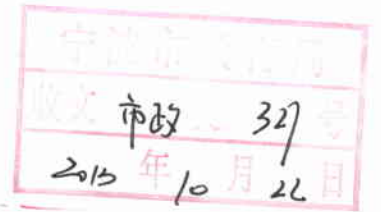 宁波市
收文 市政 327 号
2015 年 10 月 22 日